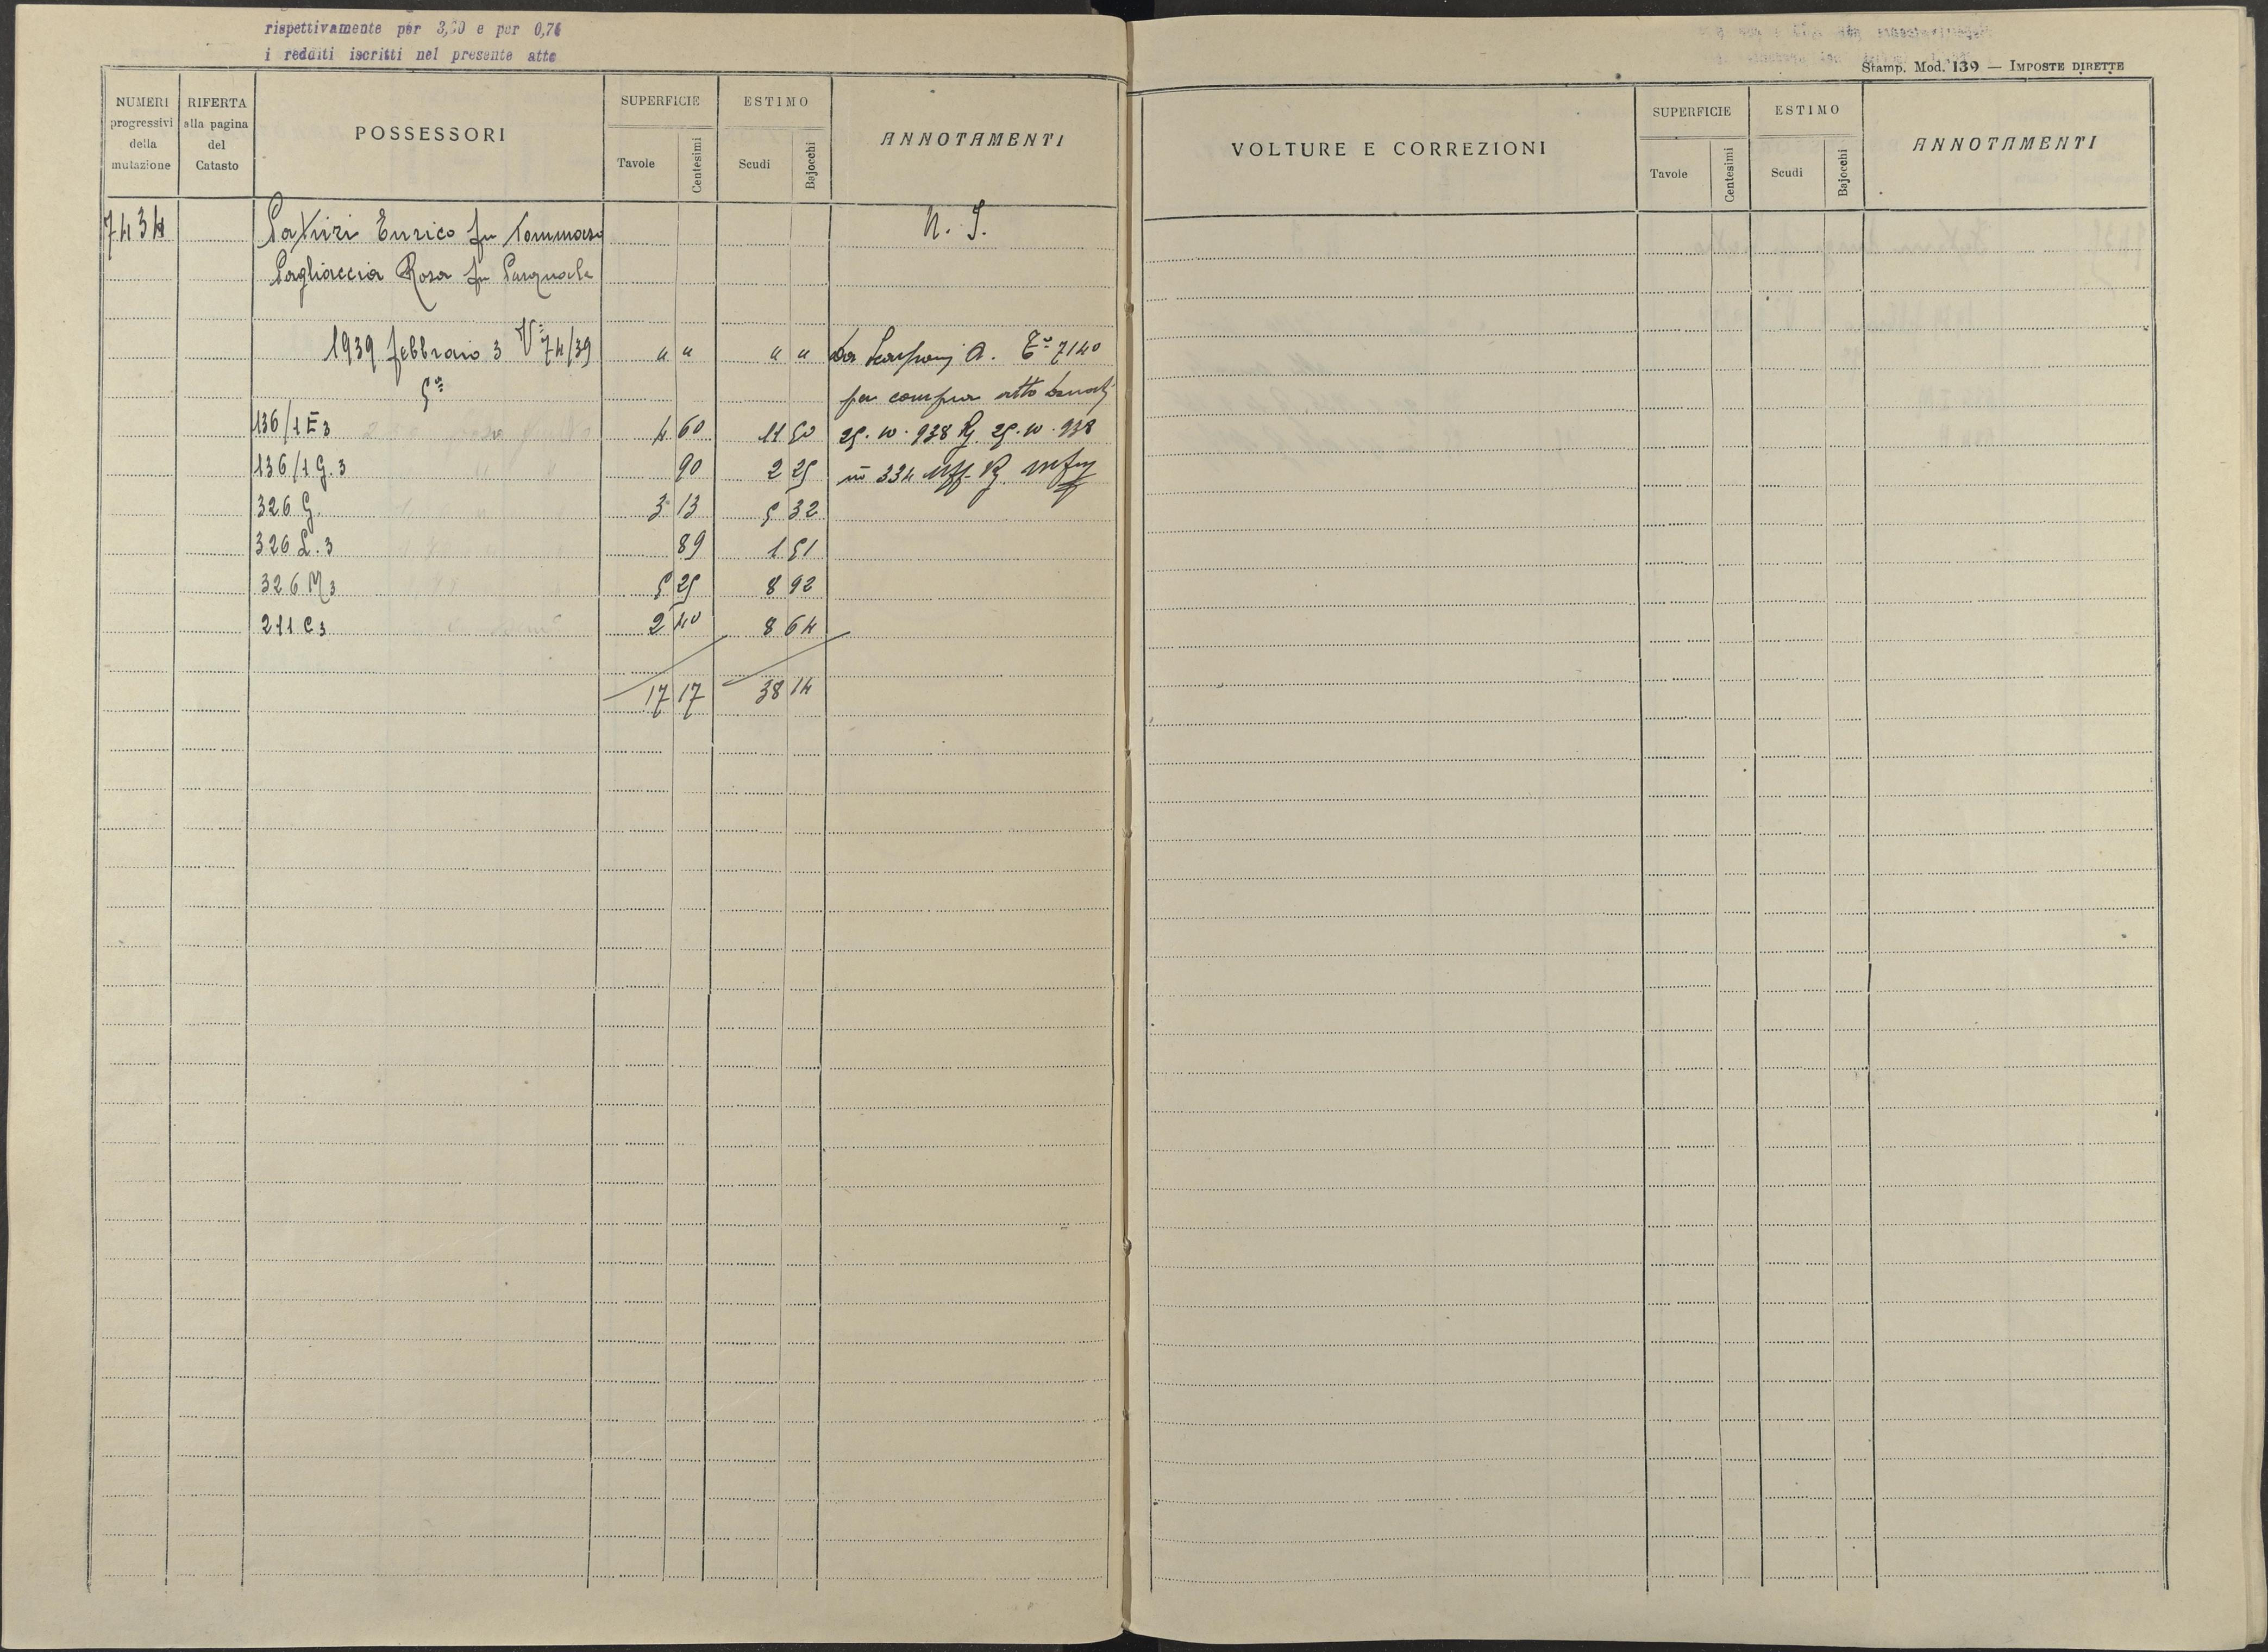 rispettivamente per 3,60 e per 0,74
i redditi iscritti nel presente atto
Stamp. Mod. 139 — IMPOSTE DIRETTE
NUMERI progressivi della mutazione
RIFERTA alla pagina del Catasto
POSSESSORI
SUPERFICIE
Tavole Centesimi
ESTIMO
Scudi Bajocchi
ANNOTAMENTI
VOLTURE E CORREZIONI
SUPERFICIE
Tavole Centesimi
ESTIMO
Scudi Bajocchi
ANNOTAMENTI
7434 Enrico fu Tommaso N. I.
Pagliaccia Rosa fu Pasquale
1939 febbraio 3 V° 74/39 " " " " Da A. T° 7140
5° per compra atto
136/1 E3 4 60 11 50 25.10.938 Rg 25.10.938
136/1 G.3 90 2 25 n° 334
326 G. 3 13 5 32
326 L.3 89 1 51
326 M3 5 25 8 92
211 C3 2 40 8 64
17 17 38 14